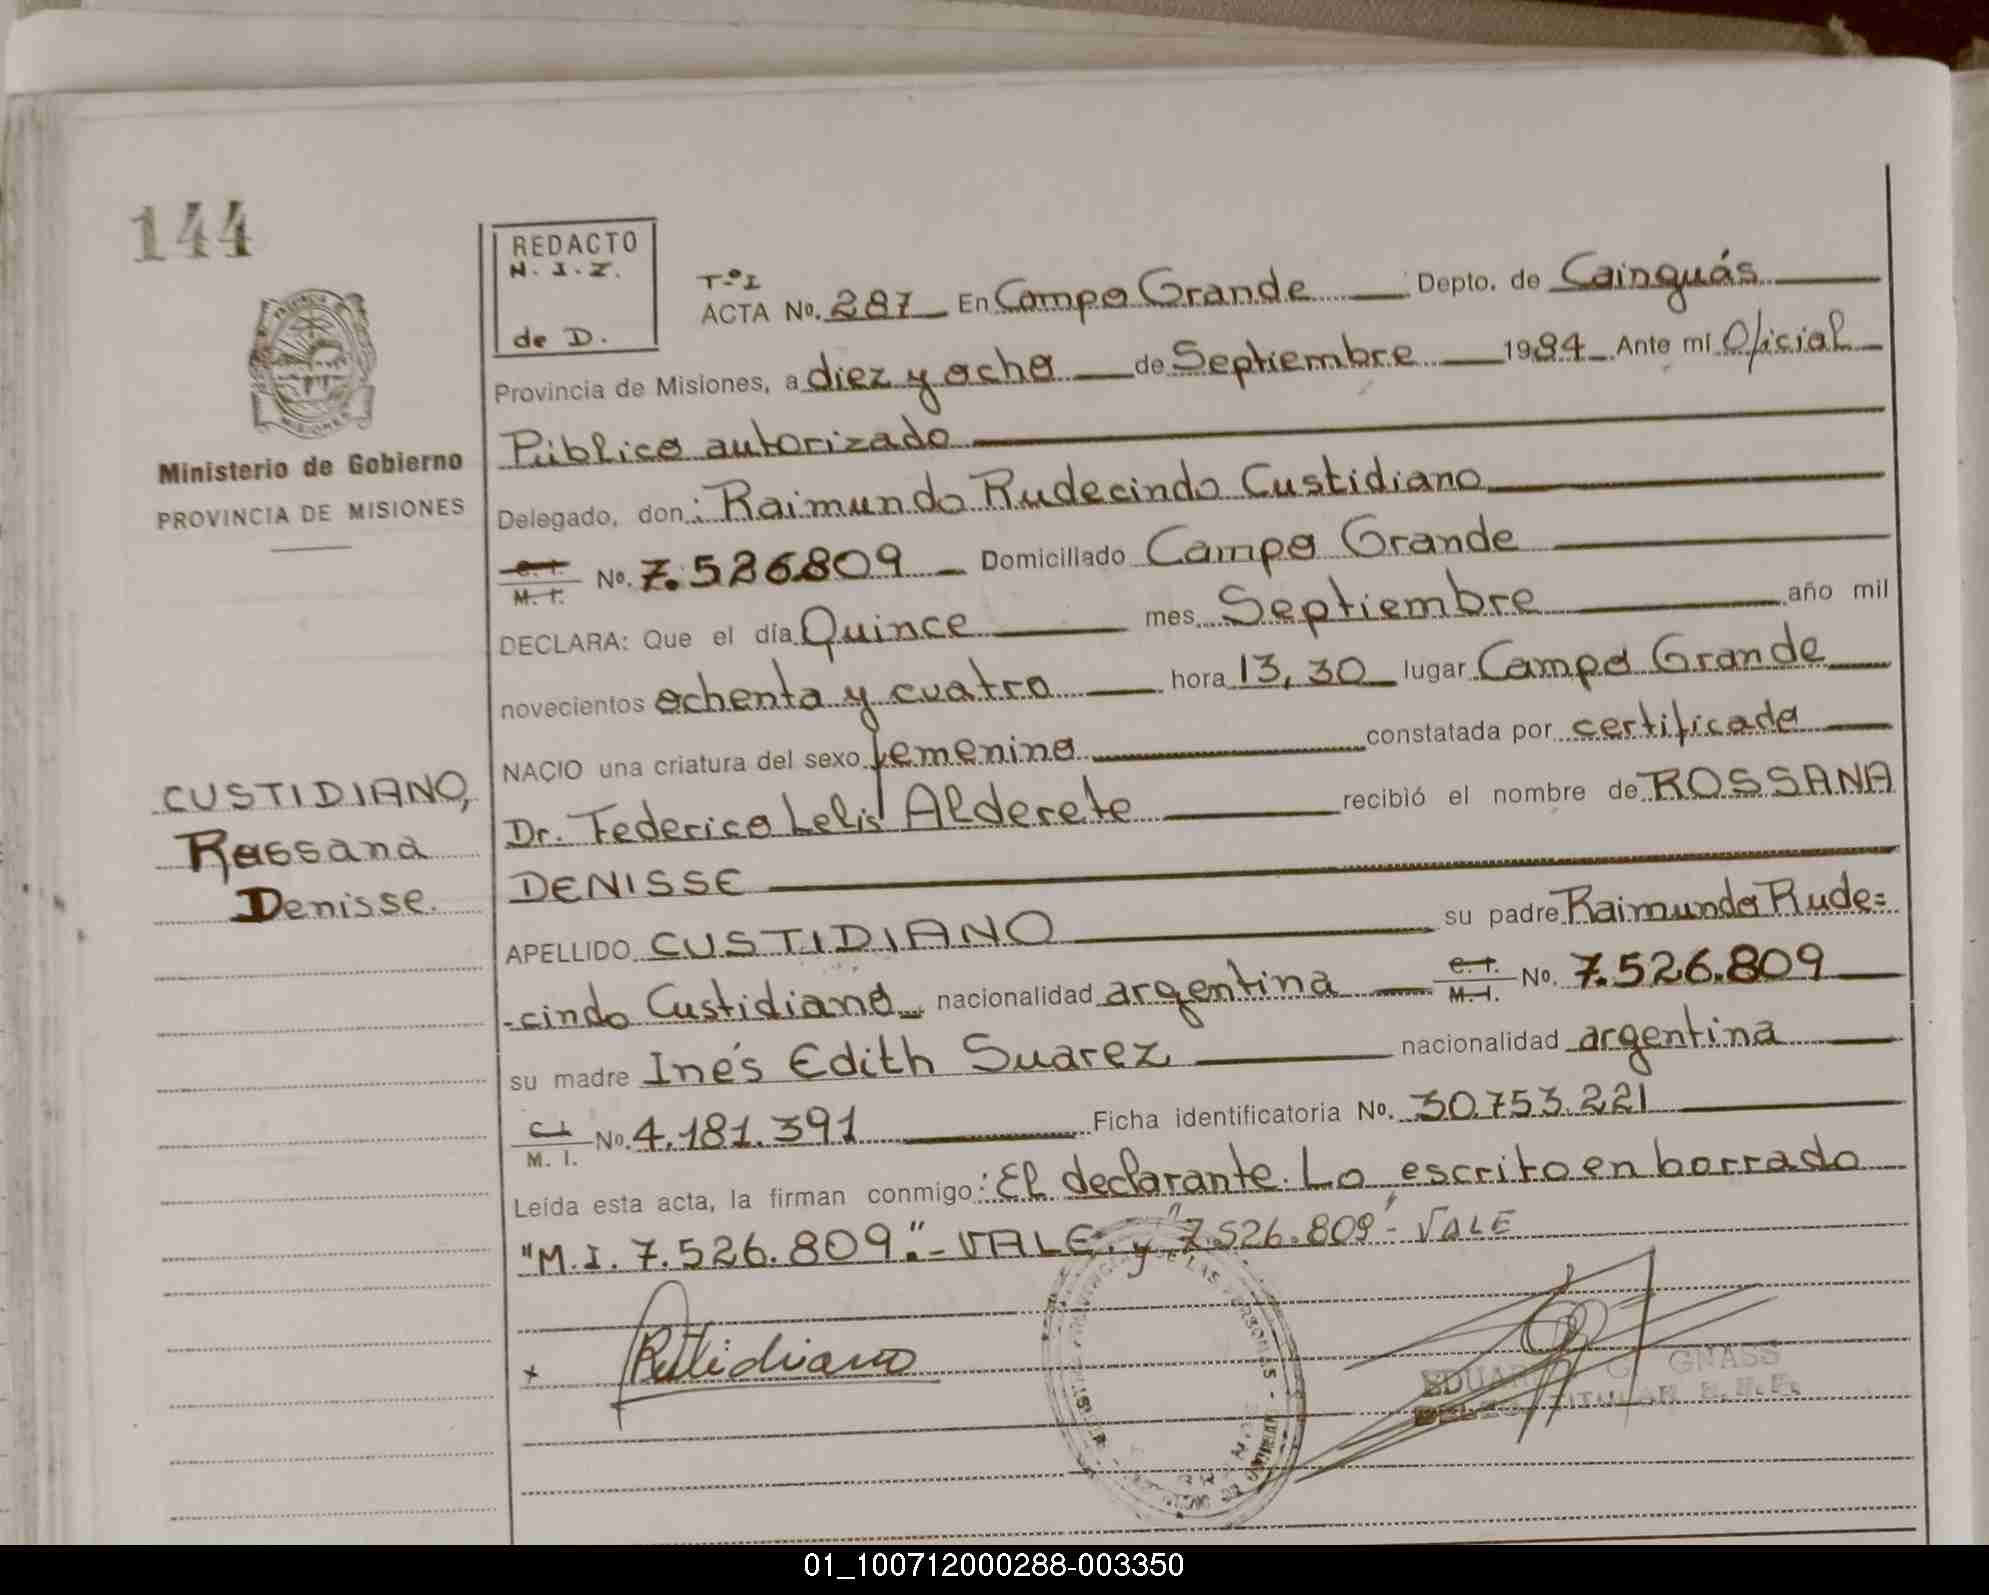 144
REDACTO
N. I. I.
de D.
T-º I
ACTA No. 287 En Campo Grande Depto. de Cainguás
Provincia de Misiones, a diez y ocho de Septiembre 1984 Ante mí Oficial
Público autorizado
Delegado, don: Raimundo Rudecindo Custidiano
C. I. M. I. No. 7.526.809 Domiciliado Campo Grande
DECLARA: Que el día Quince mes Septiembre año mil
novecientos ochenta y cuatro hora 13,30 lugar Campo Grande
NACIO una criatura del sexo femenino constatada por certificado
Dr. Federico Lelis Alderete recibió el nombre de ROSSANA
DENISSE
APELLIDO CUSTIDIANO su padre Raimundo Rude=
-cindo Custidiano nacionalidad argentina C. I. M. I. No. 7.526.809
su madre Inés Edith Suarez nacionalidad argentina
C. I. M. I. No. 4.181.391 Ficha identificatoria No. 30.753.221
Leída esta acta, la firman conmigo: El declarante. Lo escrito en borrado
"M.I. 7.526.809."- VALE. y "7.526.809"- VALE
Ministerio de Gobierno
PROVINCIA DE MISIONES
CUSTIDIANO,
Rossana
Denisse.
GNASS
01_100712000288-003350